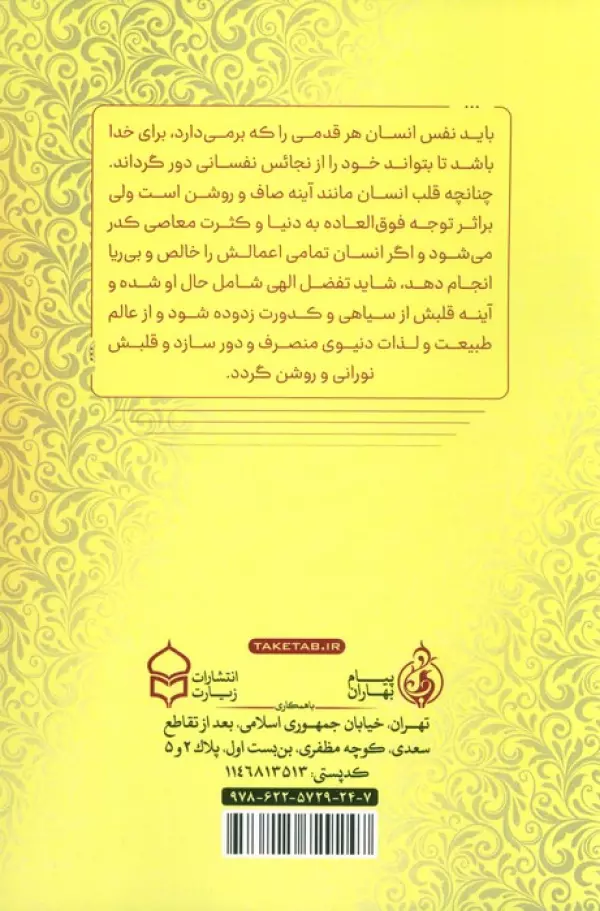 ...
باید نفس انسان هر قدمی را که برمی‌دارد، برای خدا
باشد تا بتواند خود را از نجائس نفسانی دور گرداند.
چنانچه قلب انسان مانند آینه صاف و روشن است ولی
براثر توجه فوق‌العاده به دنیا و کثرت معاصی کدر
می‌شود و اگر انسان تمامی اعمالش را خالص و بی‌ریا
انجام دهد، شاید تفضل الهی شامل حال او شده و
آینه قلبش از سیاهی و کدورت زدوده شود و از عالم
طبیعت و لذات دنیوی منصرف و دور سازد و قلبش
نورانی و روشن گردد.
TAKETAB.IR
پیام بهاران
انتشارات زیارت
باهمکاری
تهران، خیابان جمهوری اسلامی، بعد از تقاطع
سعدی، کوچه مظفری، بن‌بست اول، پلاک ۲ و ۵
کدپستی: ۱۱۴۶۸۱۳۵۱۳
۹۷۸-۶۲۲-۵۷۲۹-۲۴-۷